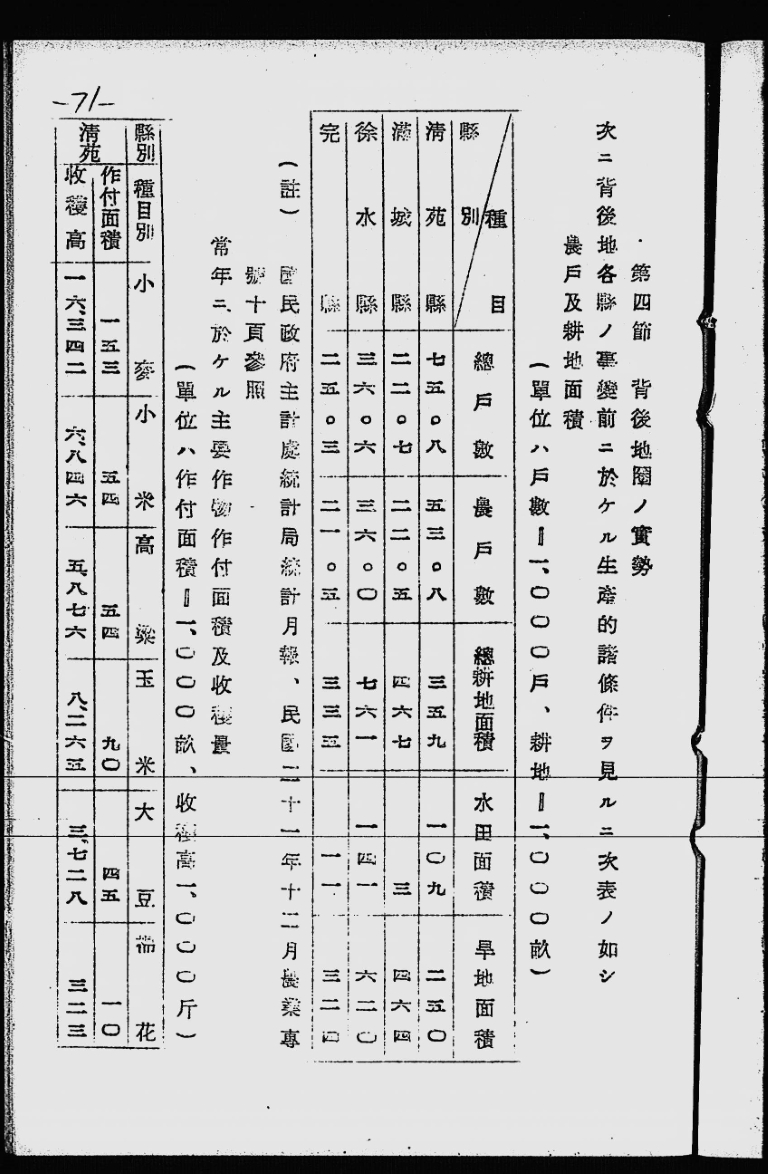 第四節 背後地圏ノ實勢
次ニ背後地各縣ノ事變前ニ於ケル生產的諸條件ヲ見ルニ次表ノ如シ
農戶及耕地面積
(單位ハ戶數―一、〇〇〇戶、耕地―一、〇〇〇畝)
縣別 種目 總戶數 農戶數 總耕地面積 水田面積 旱地面積
淸苑縣 七五。八 五三。八 三五九 一〇九 二五〇
滿城縣 二二。七 二二。五 四六七 三 四六四
徐水縣 三六。六 三六。〇 七六一 一四一 六二〇
完縣 二五。三 二一。五 三三五 一一 三二四
(註) 國民政府主計處統計局統計月報、民國二十一年十二月農業專
號十頁參照
常年ニ於ケル主要作物作付面積及收穫量
(單位ハ作付面積―一、〇〇〇畝、收穫高一、〇〇〇斤)
縣別 種目別 小麥 小米 高粱 玉米 大豆 棉花
淸苑 作付面積 一五三 五四 五四 九〇 四五 一〇
收穫高 一六、三四二 六、八四六 五、八七六 八、二六五 三、七二八 三二三
-71-